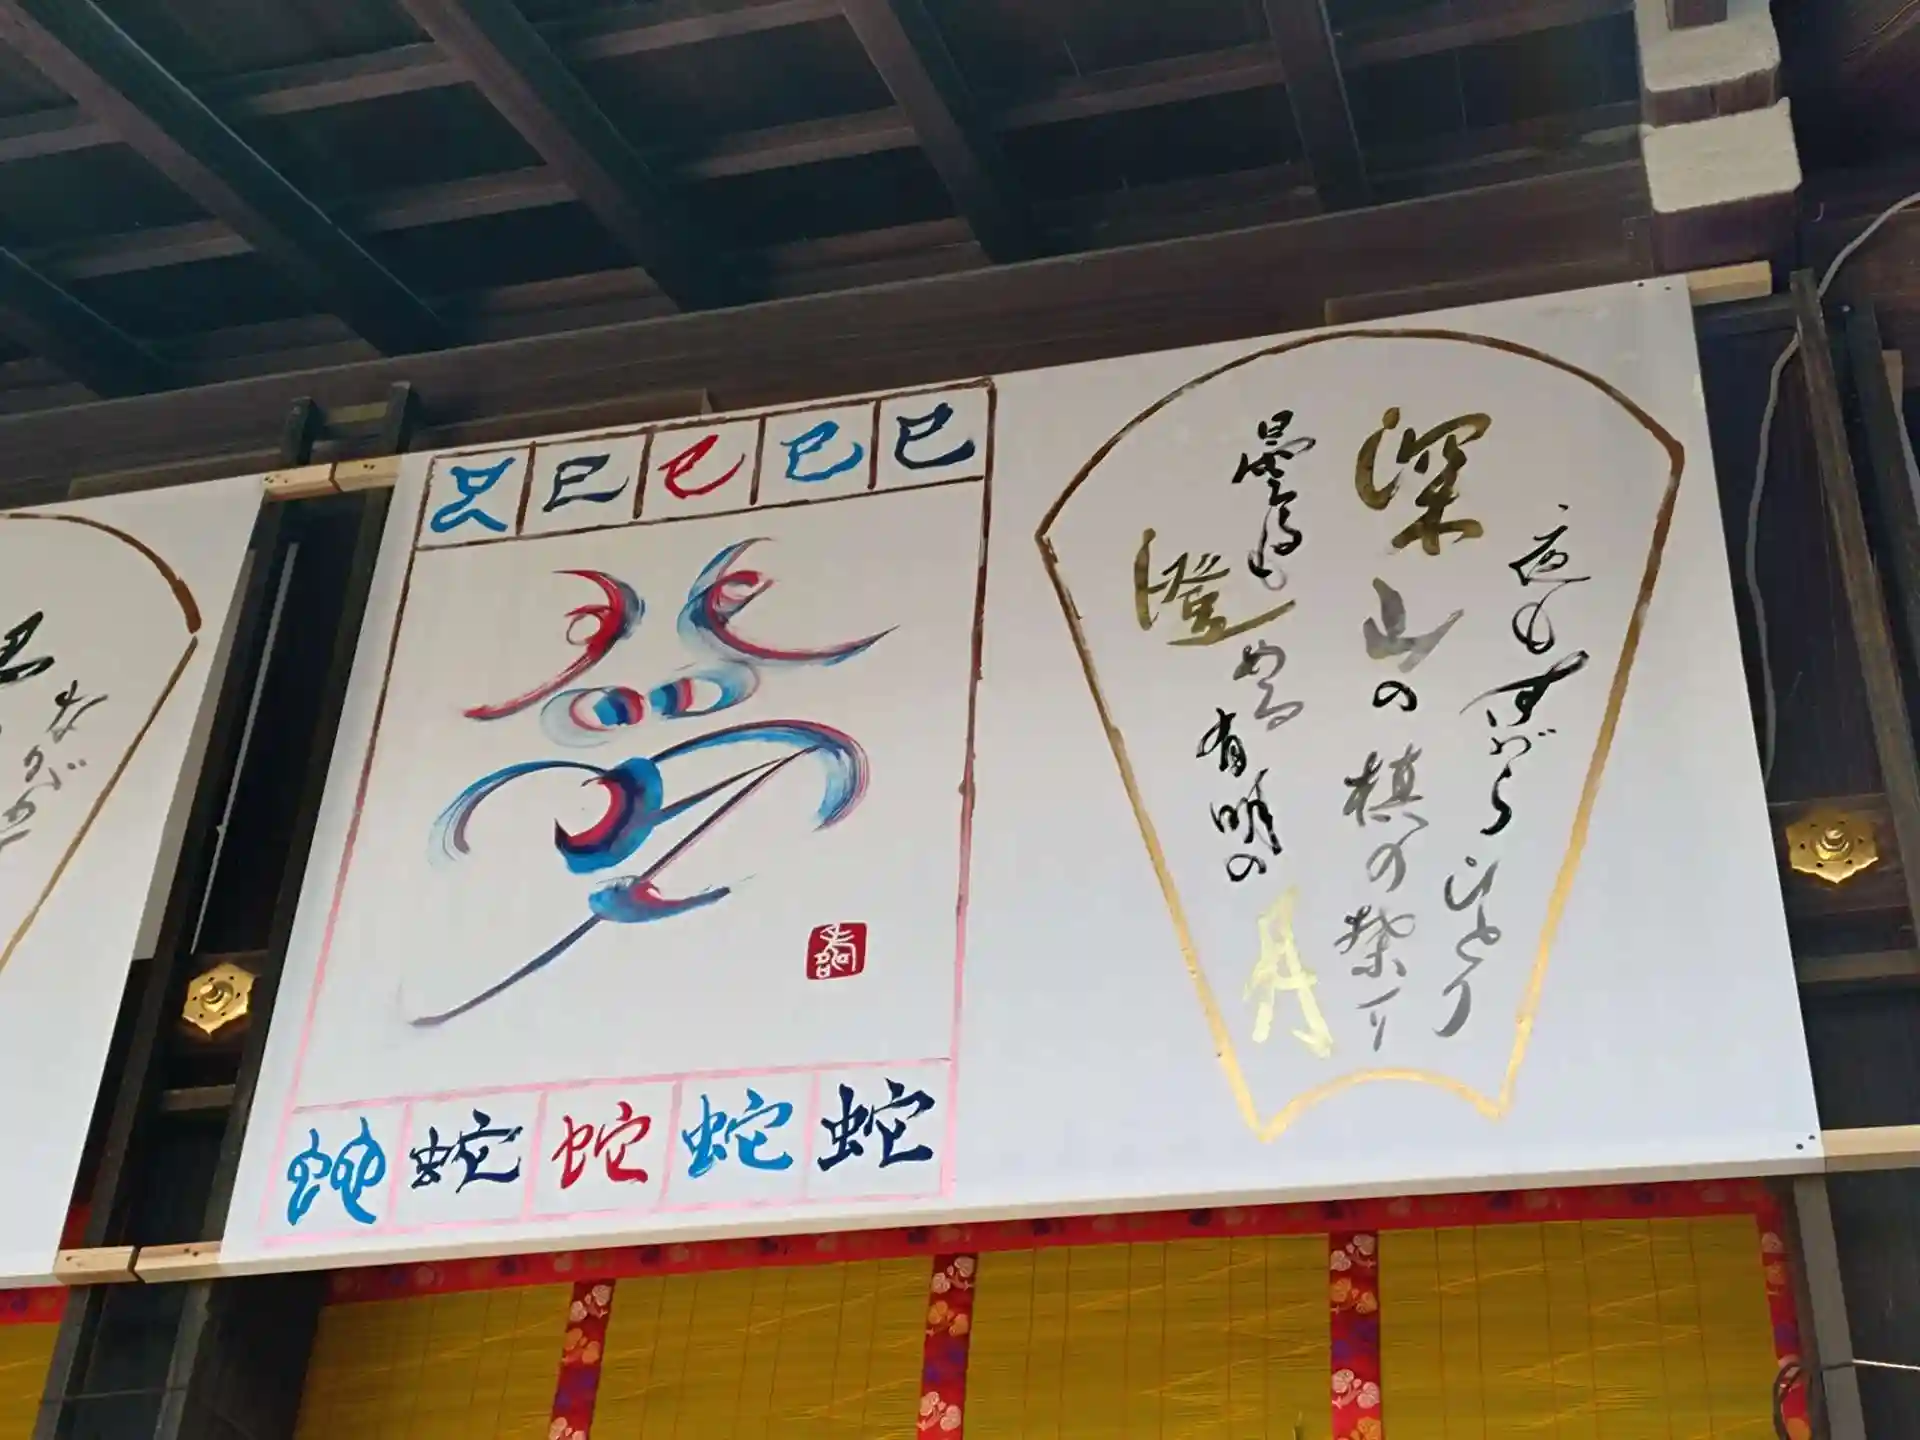 夜もすがらひとり
深山の槙の葉に
曇るも
澄める有明の月
巳 巳 巳 巳 巳
蛇 蛇 蛇 蛇 蛇